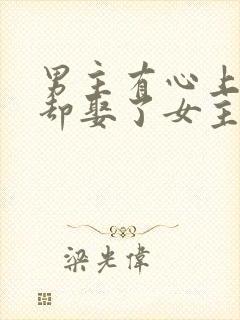 男主有心上
却娶了女主
梁光偉